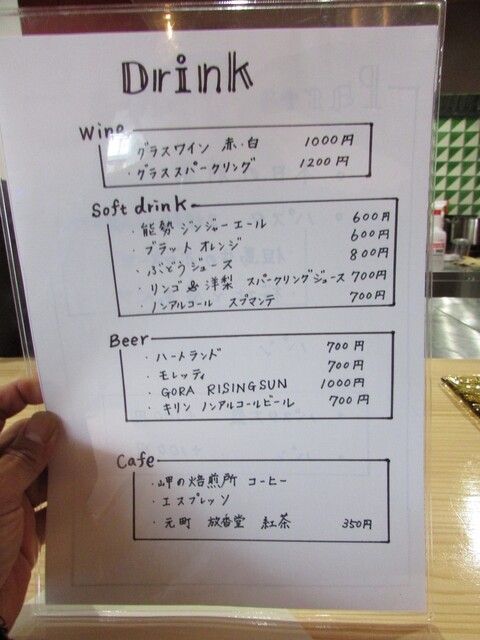 Drink
Wine
・グラスワイン 赤・白 1000円
・グラススパークリング 1200円
Soft drink
・能勢 ジンジャーエール 600円
・ブラット オレンジ 600円
・ぶどうジュース 800円
・リンゴ & 洋梨 スパークリングジュース 700円
・ノンアルコール スプマンテ 700円
Beer
・ハートランド 700円
・モレッティ 700円
・GORA RISINGSUN 1000円
・キリン ノンアルコールビール 700円
Cafe
・岬の焙煎所 コーヒー
・エスプレッソ
・元町 放香堂 紅茶 350円